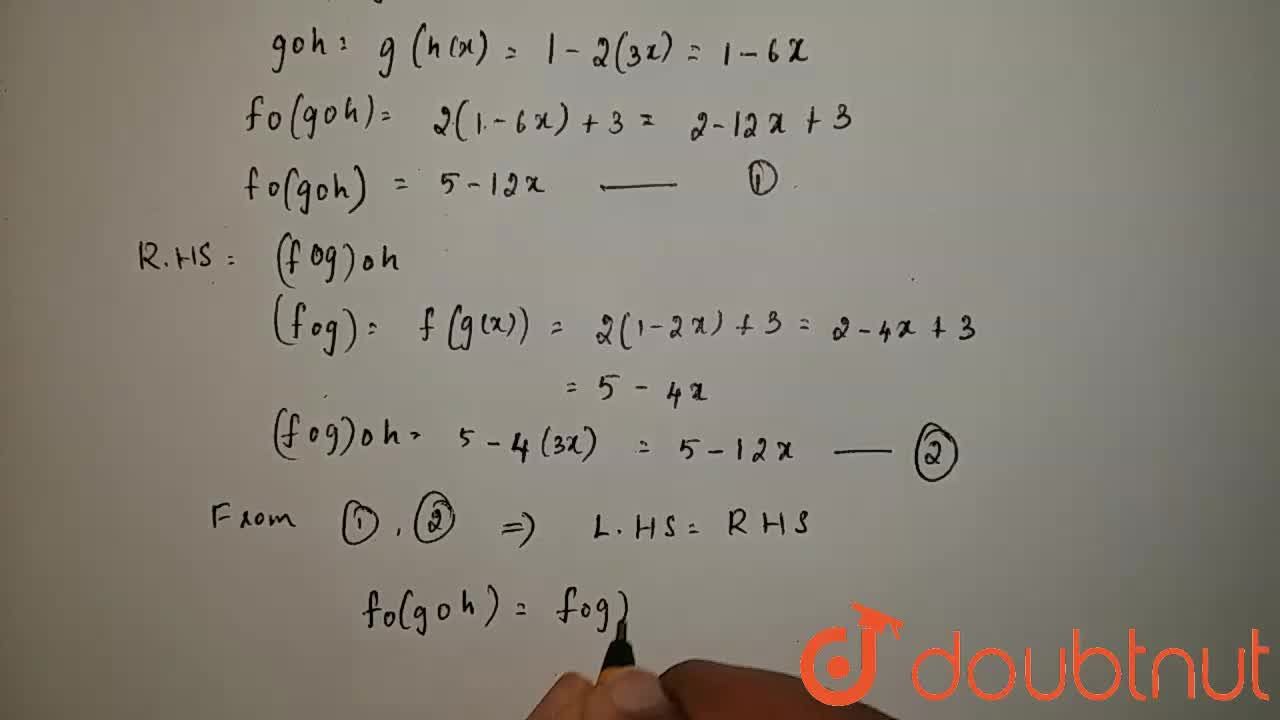 goh = g(h(x) = 1 - 2(3x) = 1 - 6x
fo(goh) = 2(1 - 6x) + 3 = 2 - 12x + 3
fo(goh) = 5 - 12x —— ①
R.HS = (fog)oh
(fog) = f(g(x)) = 2(1 - 2x) + 3 = 2 - 4x + 3
= 5 - 4x
(fog)oh = 5 - 4(3x) = 5 - 12x —— ②
From ①, ② ⇒ L.HS = RHS
fo(goh) = fog)
doubtnut